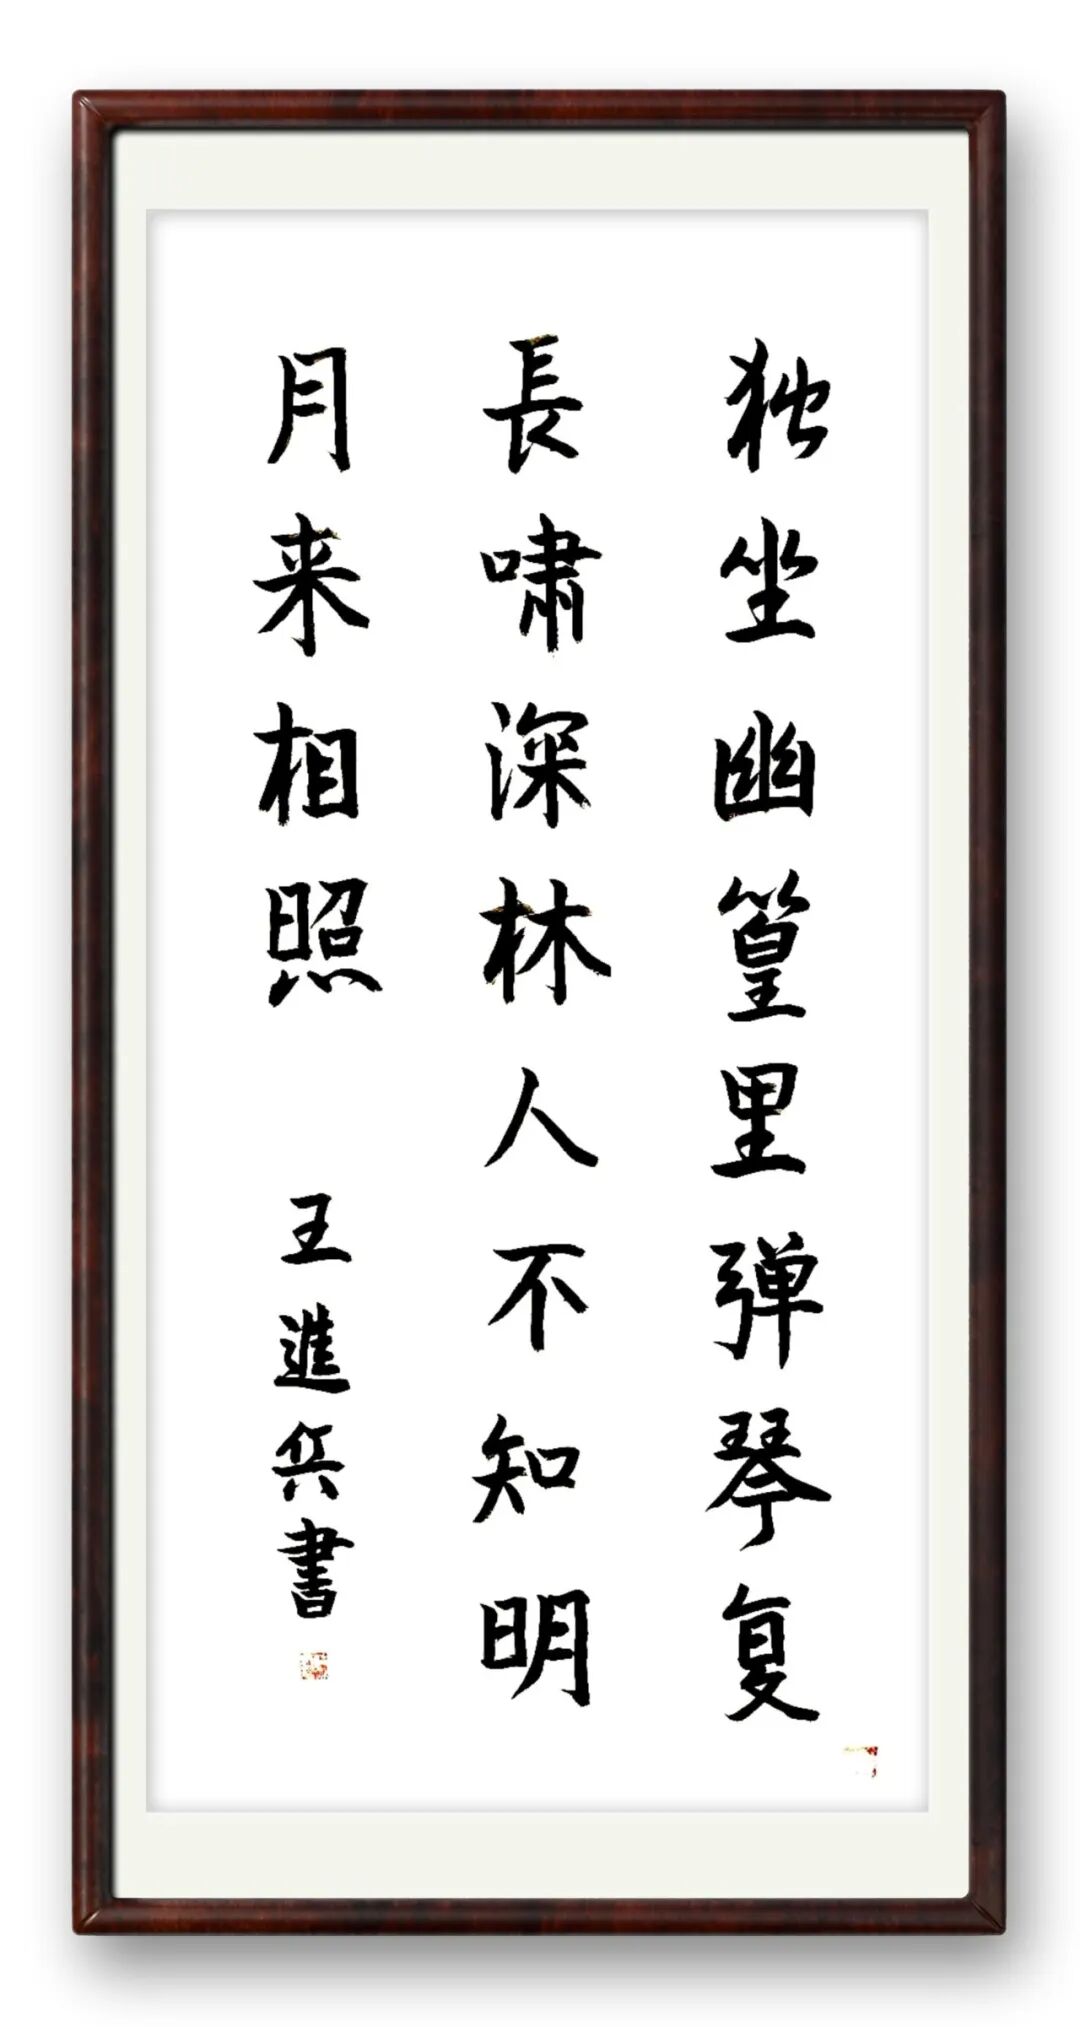 独坐幽篁里弹琴复
長啸深林人不知明
月来相照
王進兵書